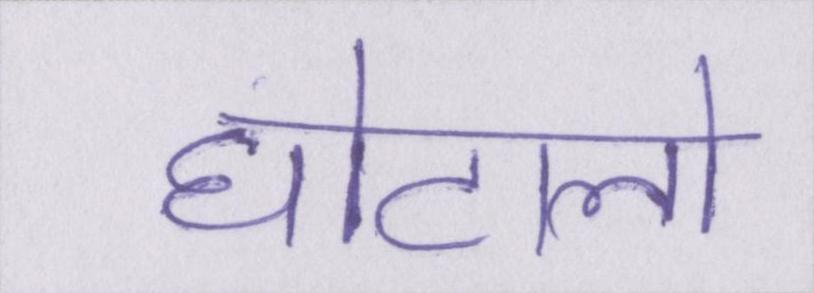 घोटालो